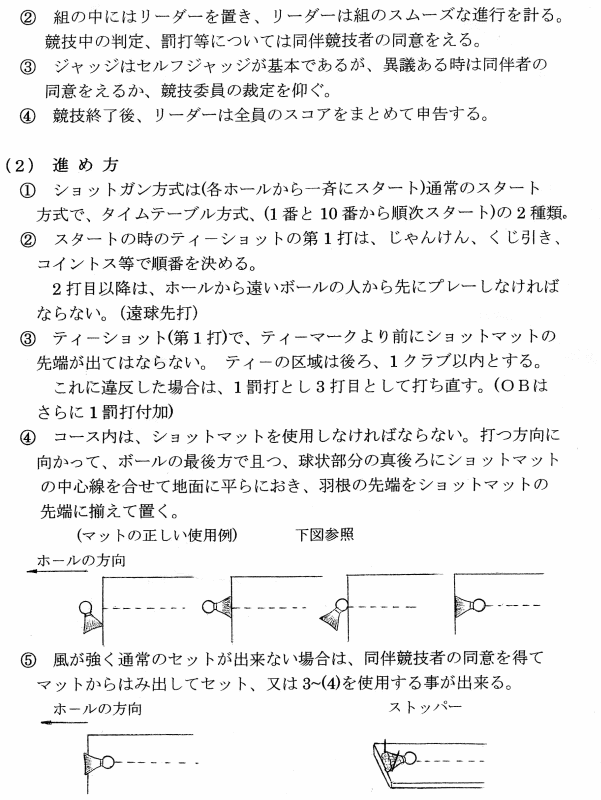 ② 組の中にはリーダーを置き、リーダーは組のスムーズな進行を計る。
競技中の判定、罰打等については同伴競技者の同意をえる。
③ ジャッジはセルフジャッジが基本であるが、異議ある時は同伴者の
同意をえるか、競技委員の裁定を仰ぐ。
④ 競技終了後、リーダーは全員のスコアをまとめて申告する。
(2) 進 め 方
① ショットガン方式は(各ホールから一斉にスタート)通常のスタート
方式で、タイムテーブル方式、(1番と10番から順次スタート)の2種類。
② スタートの時のティ－ショットの第1打は、じゃんけん、くじ引き、
コイントス等で順番を決める。
2打目以降は、ホールから遠いボールの人から先にプレーしなければ
ならない。(遠球先打)
③ ティ－ショット(第1打)で、ティ－マークより前にショットマットの
先端が出てはならない。 ティ－の区域は後ろ、1クラブ以内とする。
これに違反した場合は、1罰打とし3打目として打ち直す。(OBは
さらに1罰打付加)
④ コース内は、ショットマットを使用しなければならない。打つ方向に
向かって、ボールの最後方で且つ、球状部分の真後ろにショットマット
の中心線を合せて地面に平らにおき、羽根の先端をショットマットの
先端に揃えて置く。
(マットの正しい使用例) 下図参照
ホールの方向
⑤ 風が強く通常のセットが出来ない場合は、同伴競技者の同意を得て
マットからはみ出してセット、又は3~(4)を使用する事が出来る。
ホールの方向 ストッパー